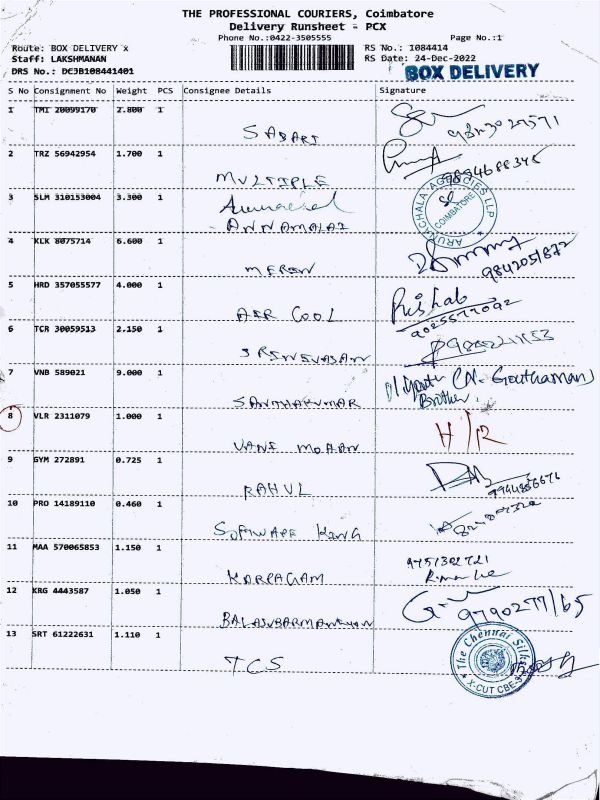 THE PROFESSIONAL COURIERS, Coimbatore
Delivery Runsheet - PCX
Phone No.:0422-3505555 Page No.:1
Route: BOX DELIVERY x RS No.: 1084414
Staff: LAKSHMANAN RS Date: 24-Dec-2022
DRS No.: DCJB108441401 BOX DELIVERY
S No Consignment No Weight PCS Consignee Details Signature
1 TMI 20099170 2.800 1
SABARI
2 TRZ 56942954 1.700 1
MULTIPLE 9894688345
3 SLM 310153004 3.300 1
Arunachal ARUNACHALA AGENCIES LLP COIMBATORE
ANNAMALAI
4 KLK 8075714 6.600 1
MERON 9842051872
5 HRD 357055577 4.000 1 Rishab
AIR COOL 9025577092
6 TCR 30059513 2.150 1
SRINIVASAN
7 VNB 589021 9.000 1 (N. Gouthaman)
SANTHAKUMAR Brother.
8 VLR 2311079 1.000 1 H/R
VANI MOHAN
9 GYM 272891 0.725 1
RAHUL 9944856676
10 PRO 14189110 0.460 1
SOFTWARE KING
11 MAA 570065853 1.150 1
KARPAGAM
12 KRG 4443587 1.050 1
9790277165
13 SRT 61222631 1.110 1 The Chennai Silks
TCS X-CUT CBE-